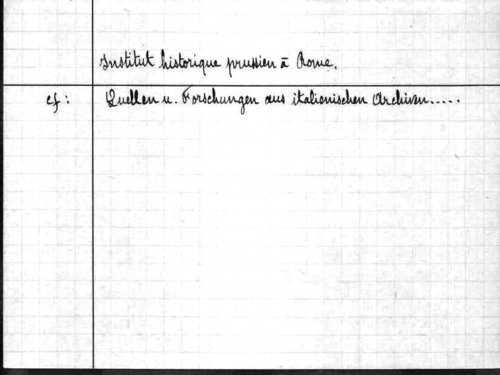 Institut historique prussien à Rome.
cf: Quellen u. Forschungen aus italienischen Archiven.....